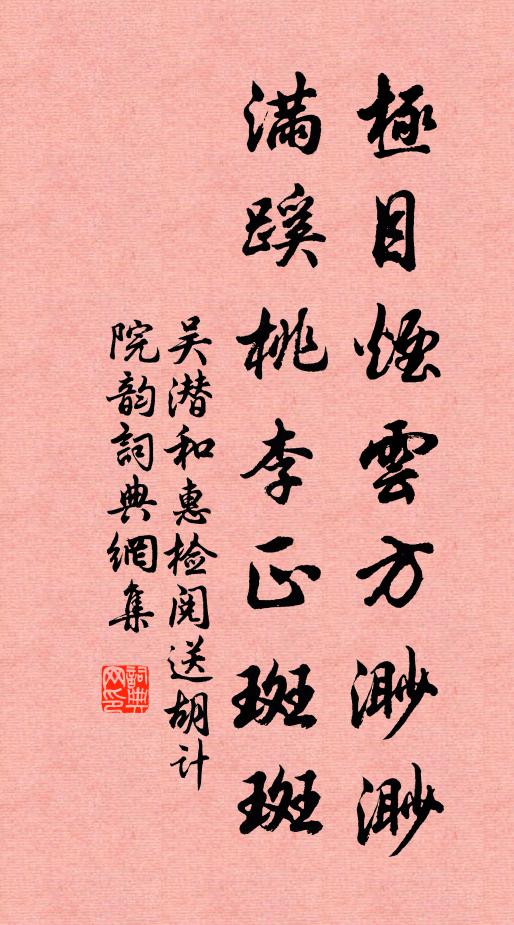 極目煙雲方渺渺
滿蹊桃李正斑斑
吴潜和惠检阅送胡计
院韵詞典網集
詞典
网印